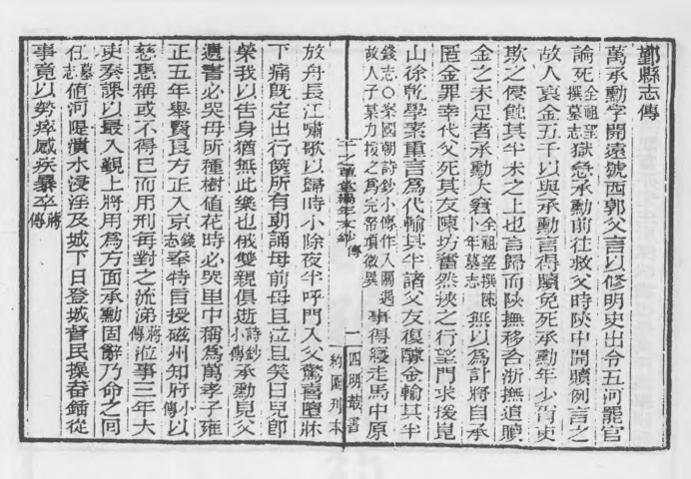 鄞縣志傳
萬承勳字開遠號西郭父言以修明史出令五河罷官
論死全祖望撰墓志獄急承勳前往救父時陝中開贖例言之
故人裒金五千以與承勳言得贖免死承勳年少胥吏
欺之侵蝕其半未之上也言歸而陝撫移咨浙撫追贖
金之未足者承勳大窘全祖望撰陳卜年墓志無以為計將自承
匿金罪幸代父死其友陳坊奮然挾之行望門求援崑
山徐乾學素重言為代輸其半諸父友復醵金輸其半
錢志〇案國朝詩鈔小傳作入關遇故人子某力援之為完帑項微異事得寢走馬中原
千之草堂編年文鈔 傳 一 四明叢書
約園刊本
放舟長江嘯歌以歸時小除夜半呼門入父驚喜墮牀
下痛既定出行篋所有朝誦母前母且泣且笑曰兒卽
榮我以告身猶無此樂也俄雙親俱逝詩鈔小傳承勳見父
遺書必哭母所種樹値花時必哭里中稱為萬孝子雍
正五年舉賢良方正入京錢志奉特旨授磁州知府小傳以
慈惠稱或不得已而用刑每對之流涕蔣傳涖事三年大
吏奏課以最入覲上將用為方面承勳固辭乃命之回
任墓志値河隄潰水浸淫及城下日登城督民操畚鍤從
事竟以勞瘁感疾暴卒蔣傳